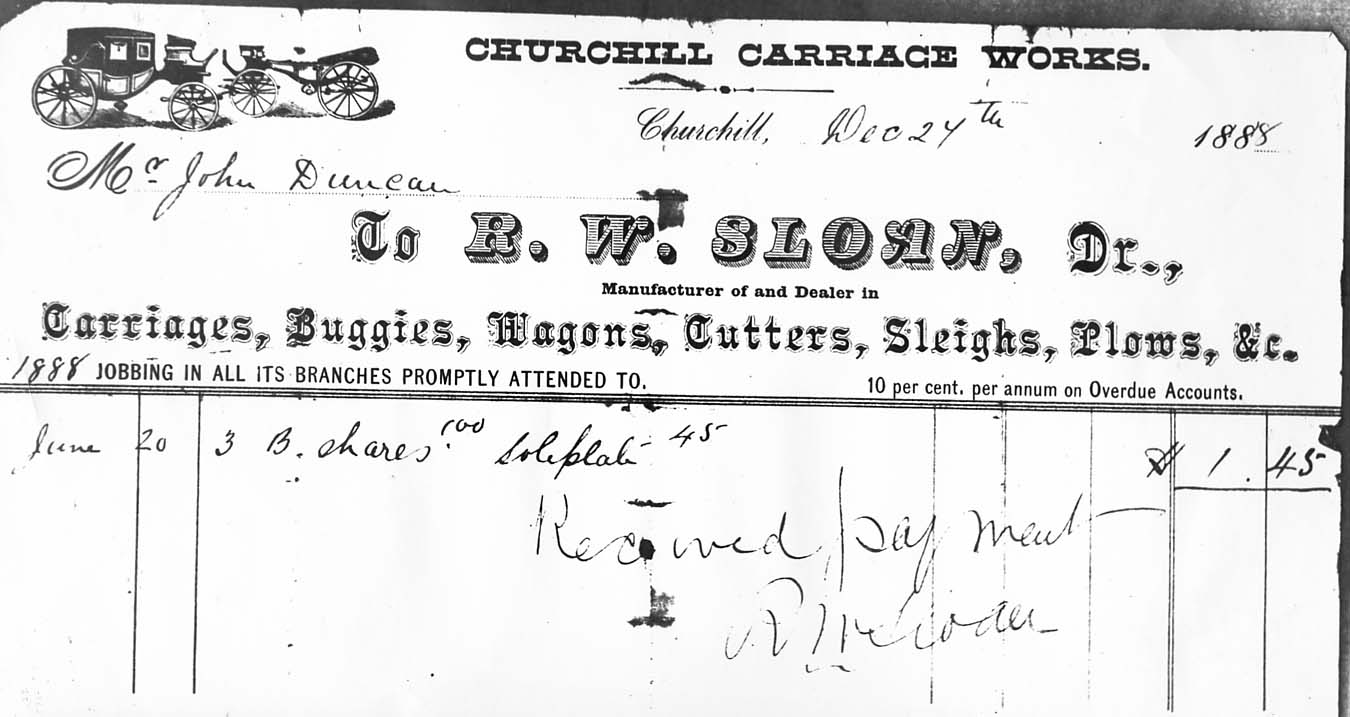 CHURCHILL CARRIAGE WORKS.
Churchill, Dec 24th 1888
Mr John Duncan
To R. W. SLOAN, Dr.,
Manufacturer of and Dealer in
Carriages, Buggies, Wagons, Cutters, Sleighs, Plows, &c.
1888 JOBBING IN ALL ITS BRANCHES PROMPTLY ATTENDED TO. 10 per cent. per annum on Overdue Accounts.
June 20 3 B. shares 100 Soleplate 45 $ 1.45
Received payment
R W Sloan